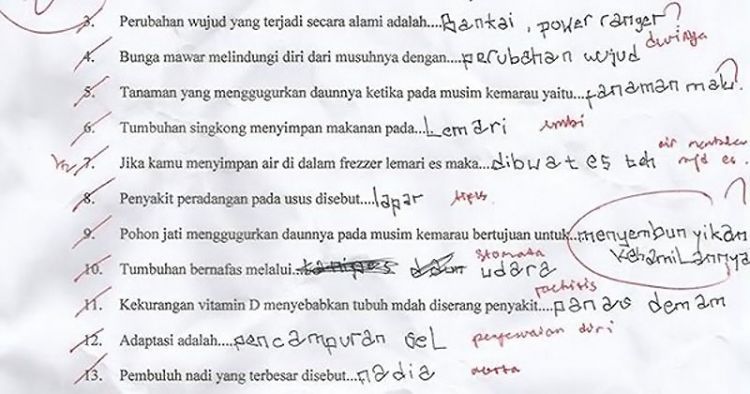 3. Perubahan wujud yang terjadi secara alami adalah....Bantai, power ranger?
durinya
4. Bunga mawar melindungi diri dari musuhnya dengan....perubahan wujud
5. Tanaman yang menggugurkan daunnya ketika pada musim kemarau yaitu...tanaman mati. ?
6. Tumbuhan singkong menyimpan makanan pada...Lemari umbi
air
7. Jika kamu menyimpan air di dalam frezzer lemari es maka...dibuat es teh mjd es.
8. Penyakit peradangan pada usus disebut....lapar tipus
?
9. Pohon jati menggugurkan daunnya pada musim kemarau bertujuan untuk..menyembunyikan
kehamilannya
Stomata
10. Tumbuhan bernafas melalui..daun udara
rachitis
11. Kekurangan vitamin D menyebabkan tubuh mdah diserang penyakit....panas demam
12. Adaptasi adalah....pencampuran sel penyesuaian diri
13. Pembuluh nadi yang terbesar disebut...nadia aorta